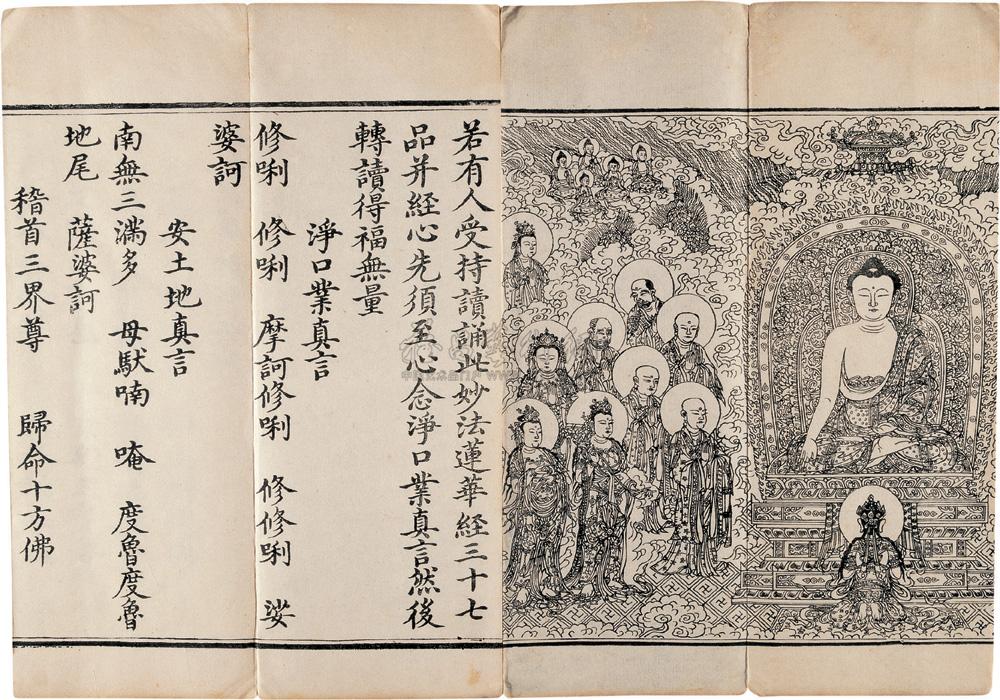 若有人受持讀誦此妙法蓮華經三十七
品并經心先須至心念淨口業真言然後
轉讀得福無量
淨口業真言
修唎　修唎　摩訶修唎　修修唎　娑
婆訶
安土地真言
南無三滿多　母馱喃　唵　度魯度魯
地尾　薩婆訶
稽首三界尊　歸命十方佛